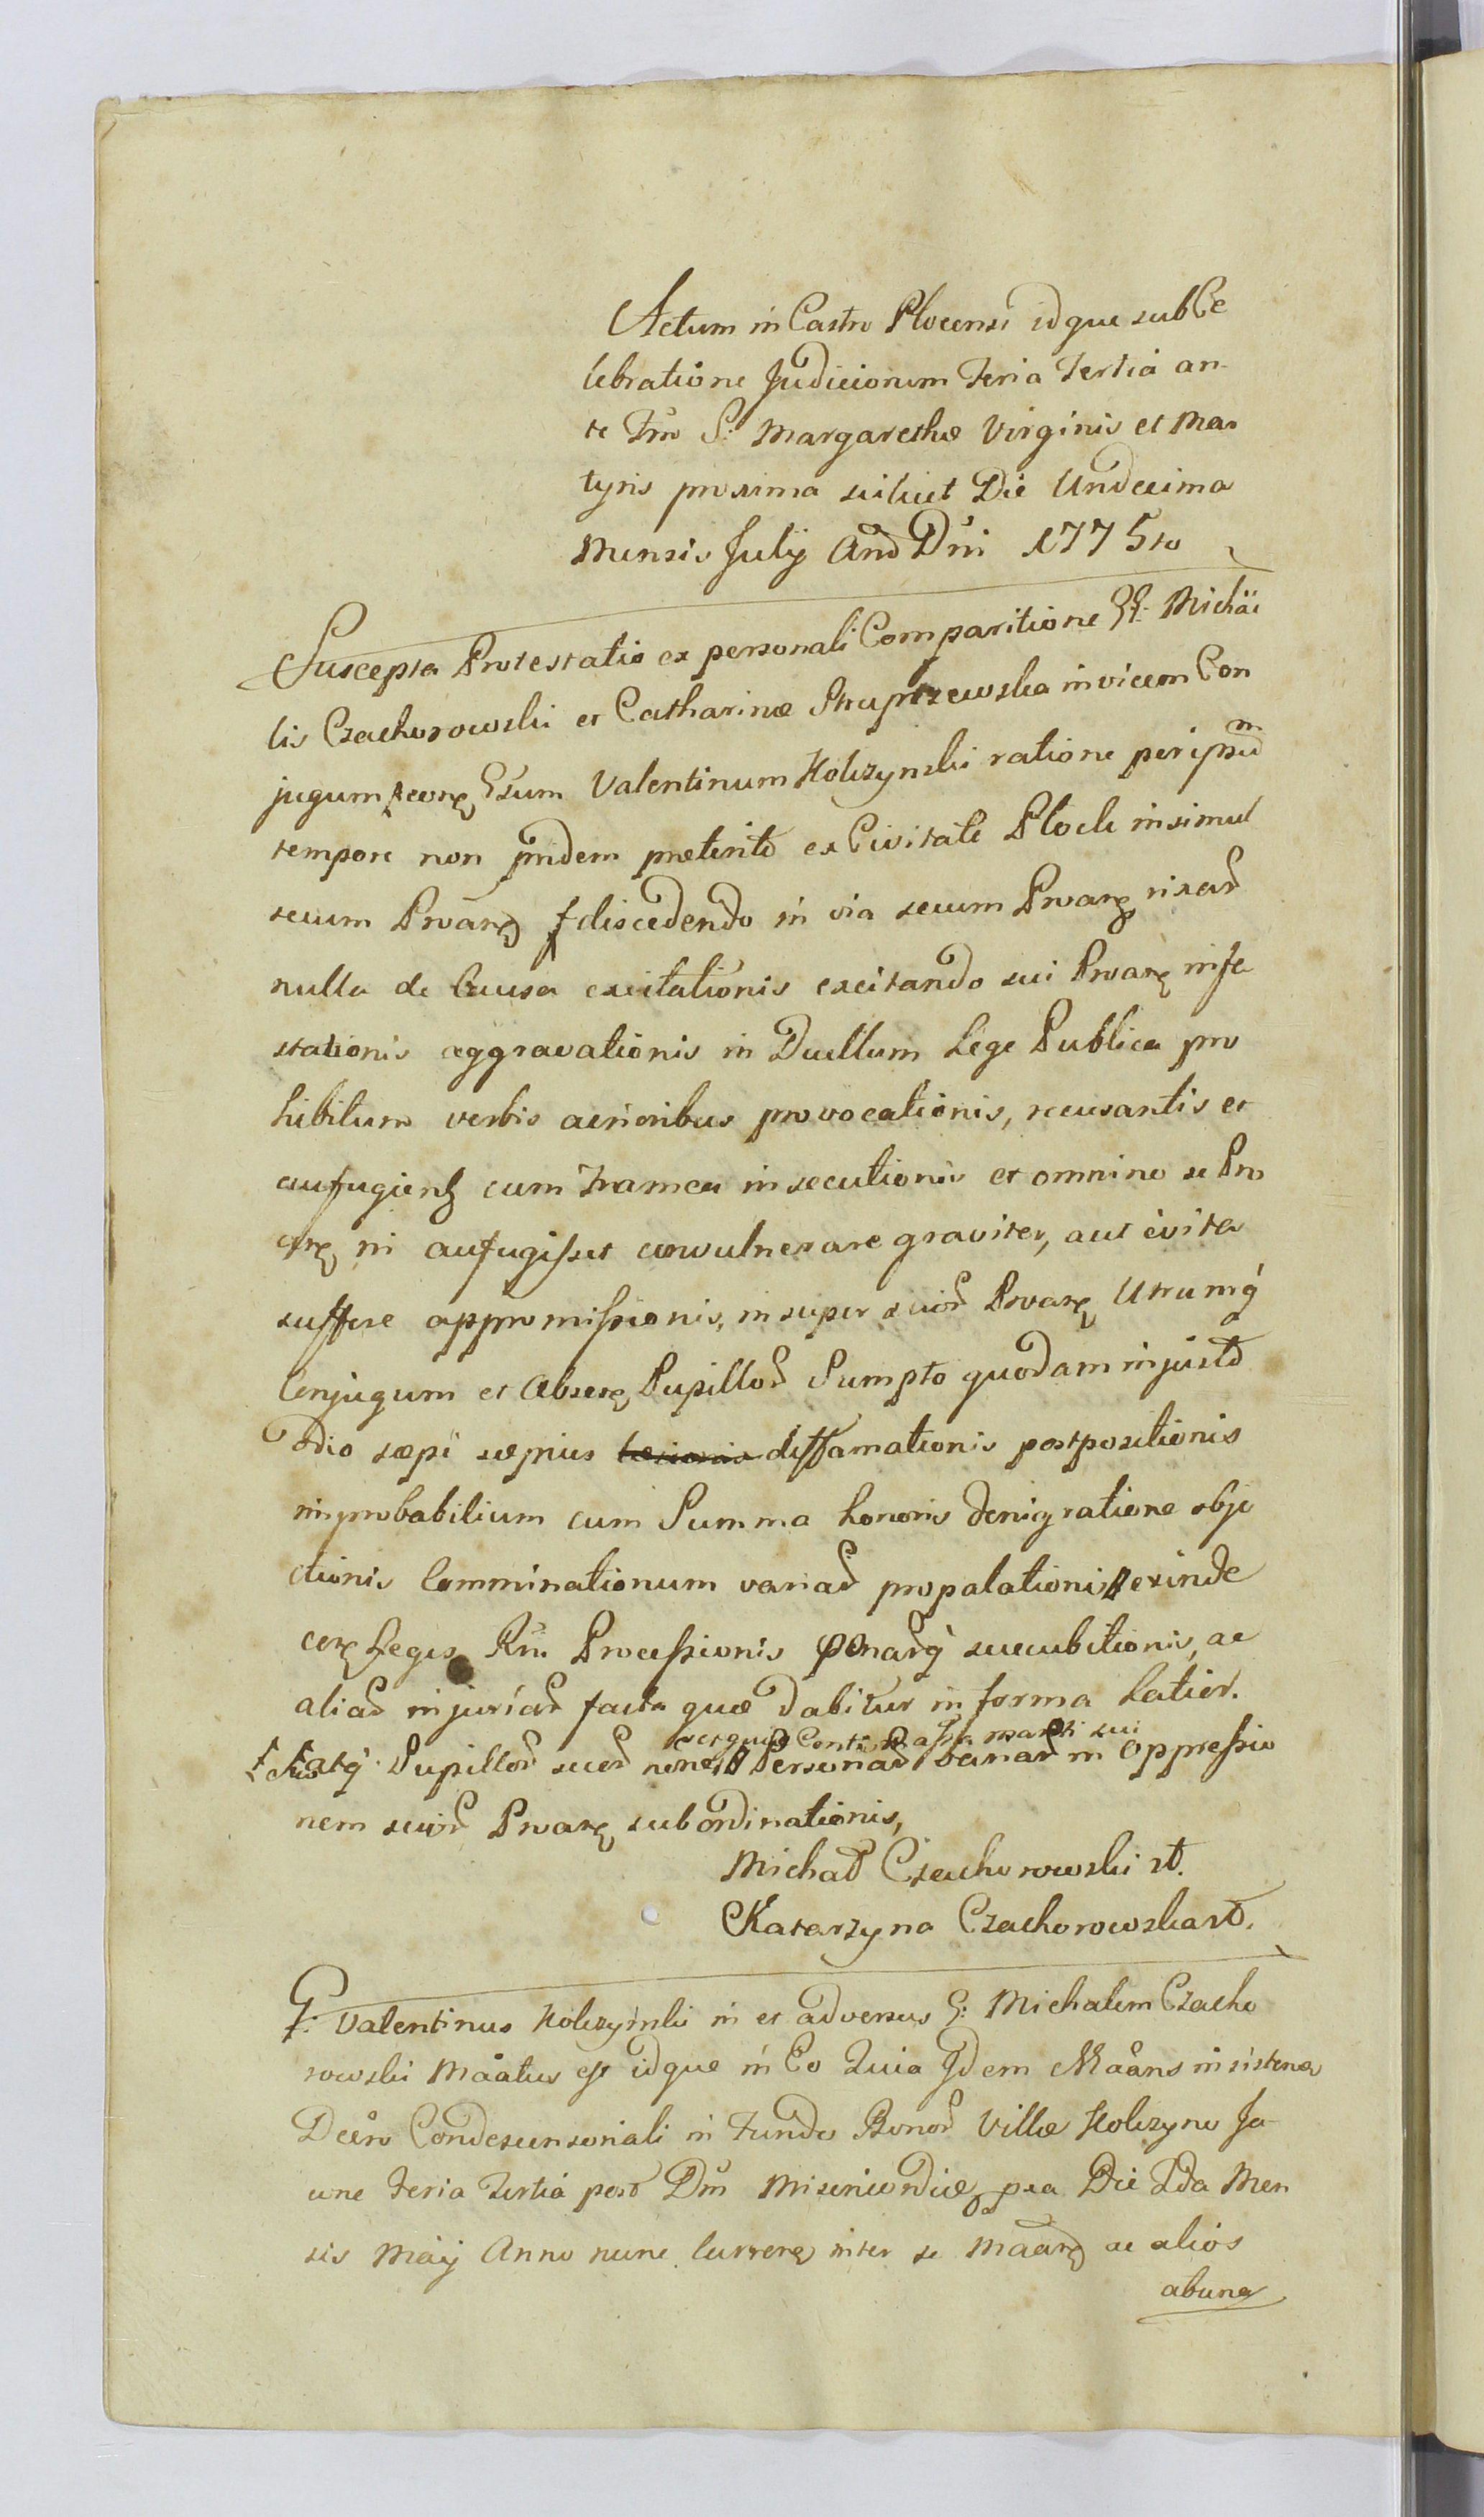 Actum in Castro Plocensi idque sub Ce
lebratione Judiciorum Feria Tertia an-
te Ftm S: Margarethæ Virginis et Mar
tyris proxima scilicet Die Undecima
Mensis July Anno Dni 1775to
Suscepta Protestatio ex personali Comparitione GG: Michae
lis Czachorowski et Catharinæ Strupczewska invicem Con
jugum Gsum Valentinum Kolczynski ratione per ipsum
tempore non pridem præterito ex Civitate Plock insimul
secum Proärę discedendo in via secum Proarę rixar
nulla de Causa excitationis excitando sui Proarę infe
stationis aggravationis in Duellum Lege Publica pro
hibitum verbis acrioribus provocationis, recusantis et
aufugientis cum Framea insecutionis et omnino se Pro
arę ni aufugisset convulnerare graviter, aut evita
suffere appromissionis, insuper suor Proarę Utrumq
Conjugum et Absnę Pupillor Sumpto quodam injusto
Odio sæpi sæpius læsionis diffamationis postpositionis
improbabilium cum Summa honoris denigratione obje
ctionis Comminationum variar propalationis exinde
cerę Legis Rni Processionis Pænarq succubitionis, ac
aliar injuriar facta quæ dabitur in forma Latior.
Pupillor suor Personar variar in Oppressio
nem suor Proarę subordinationis,
Michał Czachorowski st.
Katarzyna Czachorowska st.
G: Valentinus Kolczynski in et adversus G: Michalem Czacho
rowski Maatus est idque in Eo Quia Idem Maans insistena
Decro Condescensoriali in Fundo Bonor Villæ Kolczyno fa
ctone Feria Tertia post Dni Misericordiæ pxa Die 2da Men
sis Maij Anno nunc Currenę inter se Maarę ac alios
abuna